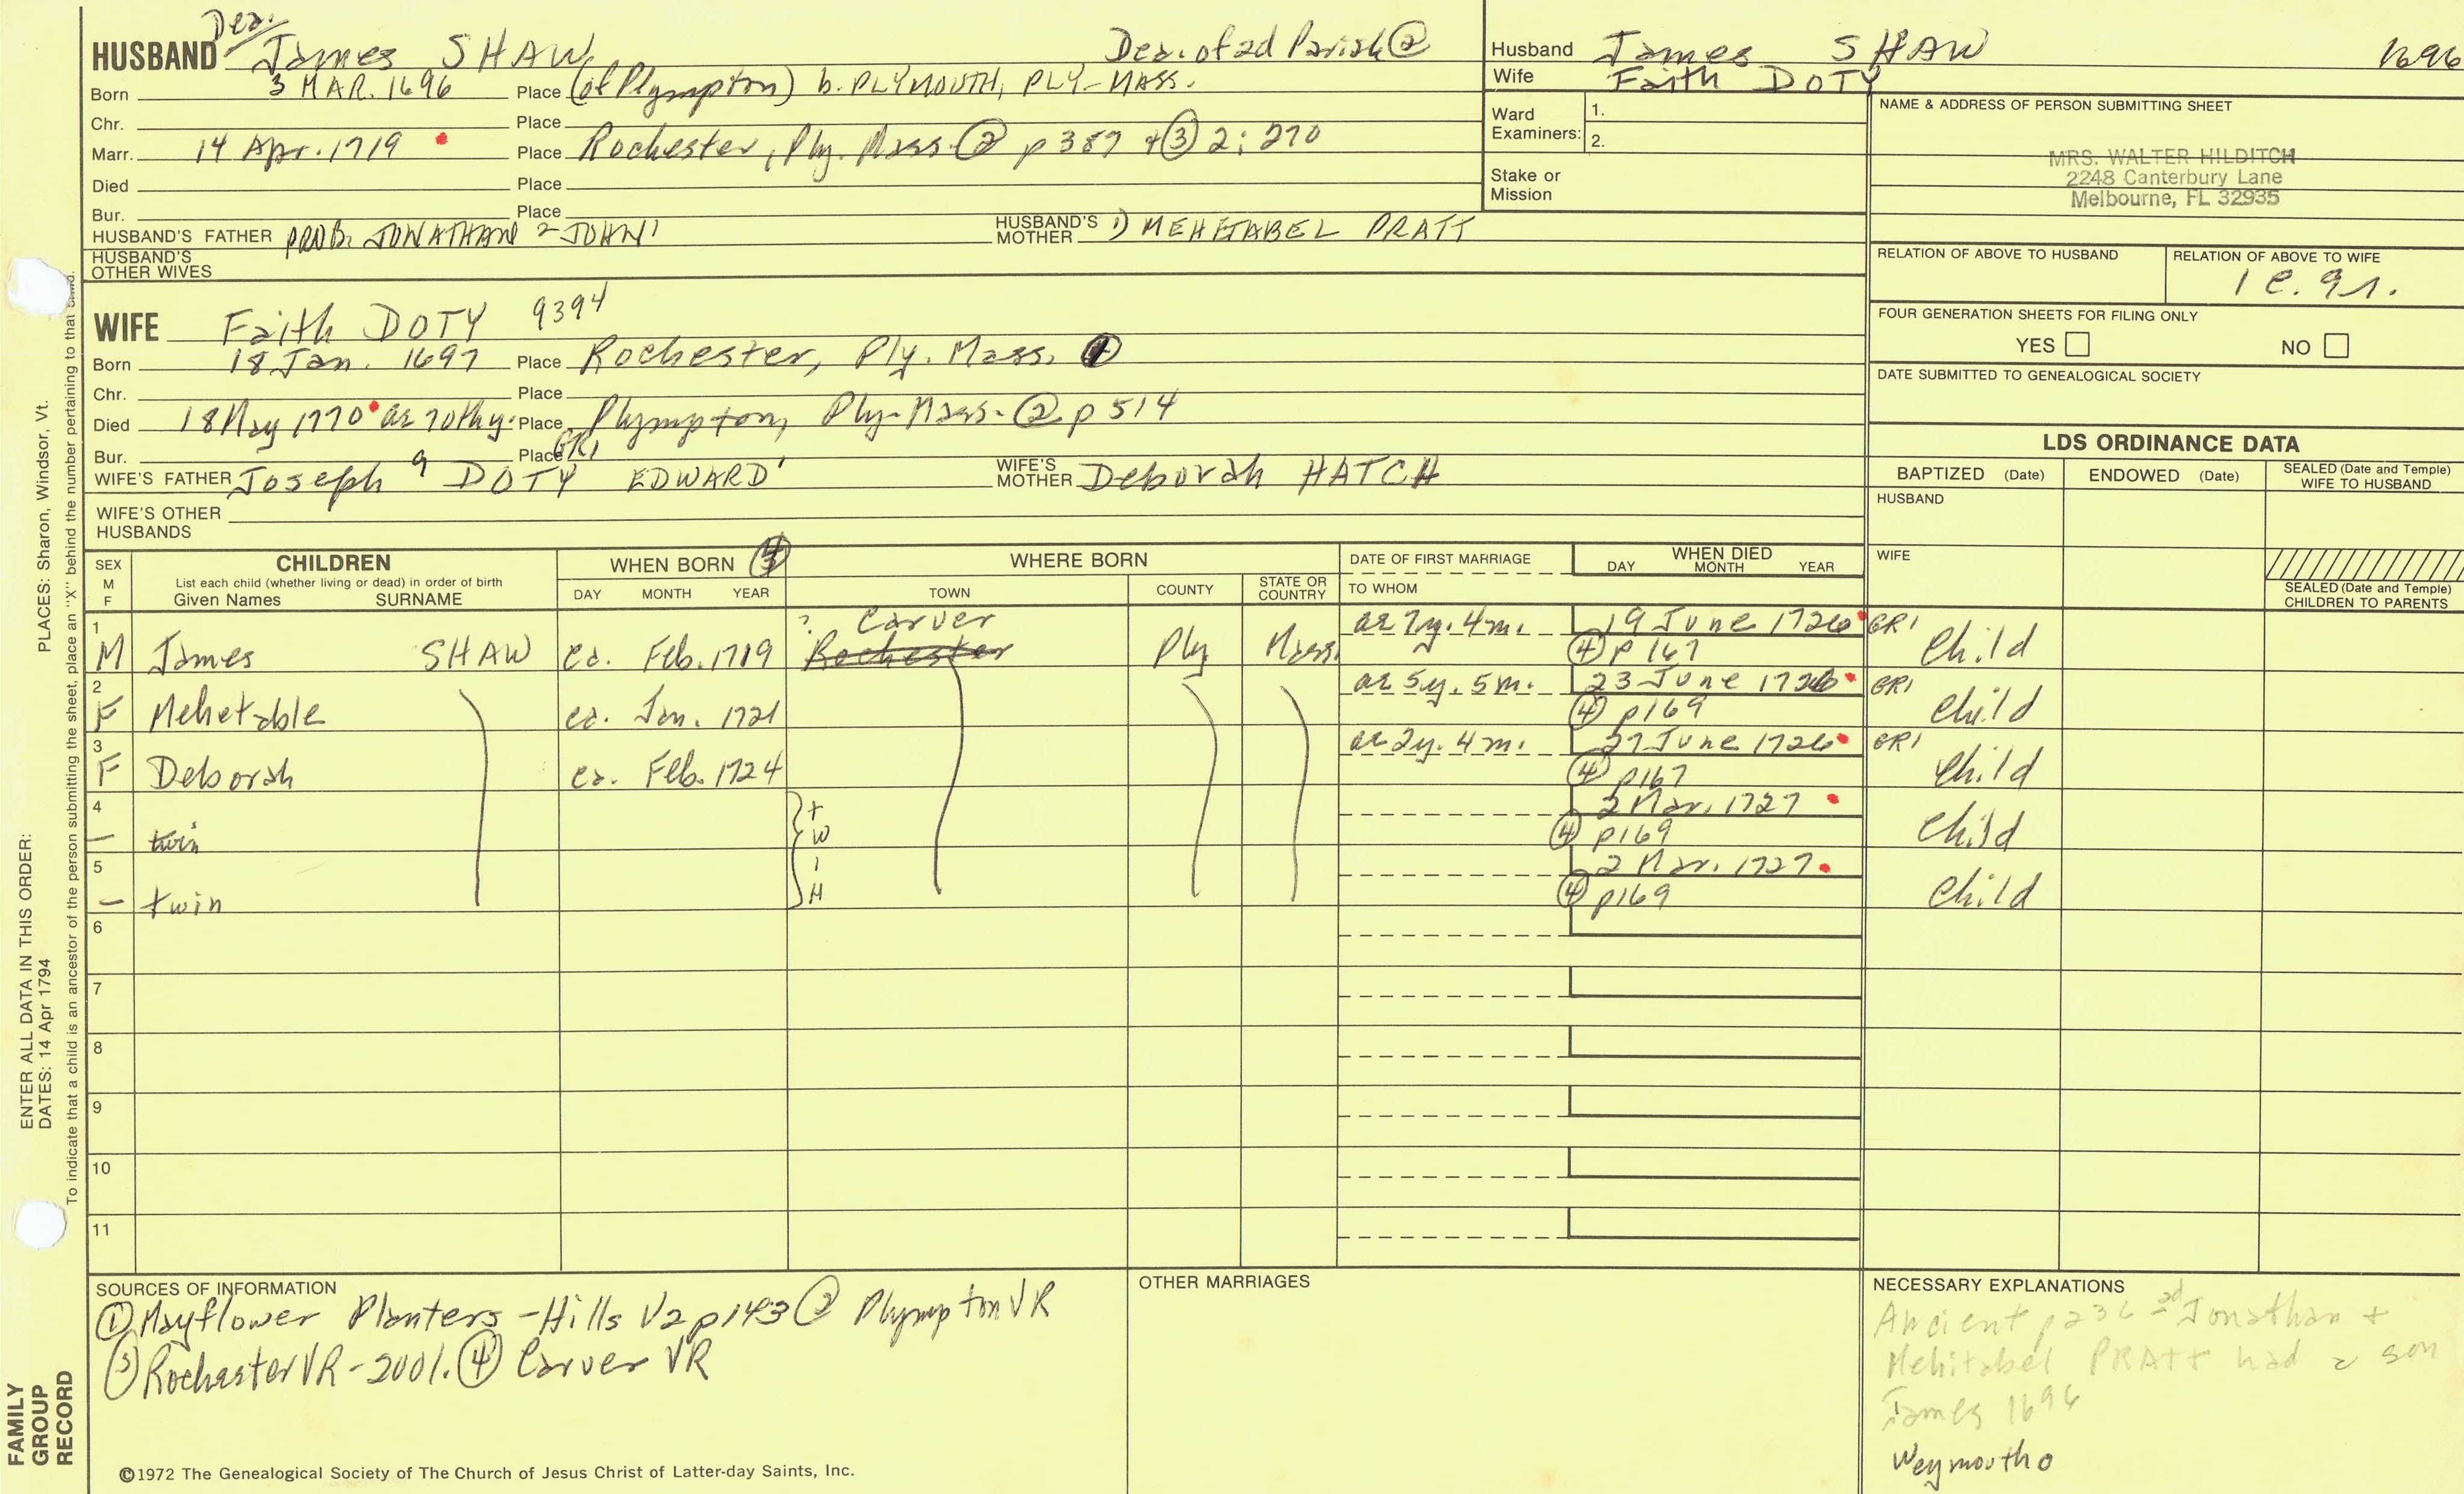 Dea.
HUSBAND James SHAW Dea. of 2d Parish ②
Born 3 MAR. 1696 Place (of Plympton) b. PLYMOUTH, PLY-MASS.
Chr. Place
Marr. 14 Apr. 1719 Place Rochester, Ply. Mass ② p 387 + ③ 2: 270
Died Place
Bur. Place
HUSBAND'S FATHER PROB. JONATHAN 2 JOHN 1 HUSBAND'S MOTHER 1) MEHETABEL PRATT
HUSBAND'S OTHER WIVES
Husband James SHAW 1696
Wife Faith DOTY
Ward Examiners: 1.
2.
Stake or Mission
NAME & ADDRESS OF PERSON SUBMITTING SHEET
MRS. WALTER HILDITCH
2248 Canterbury Lane
Melbourne, FL 32935
RELATION OF ABOVE TO HUSBAND RELATION OF ABOVE TO WIFE
FOUR GENERATION SHEETS FOR FILING ONLY
YES NO
DATE SUBMITTED TO GENEALOGICAL SOCIETY
WIFE Faith DOTY 9394
Born 18 Jan. 1697 Place Rochester, Ply. Mass. ①
Chr. Place
Died 18 May 1770 ae 70thy. Place Plympton, Ply-Mass- ② p 514
Bur. Place GR1
WIFE'S FATHER Joseph DOTY EDWARD 1 WIFE'S MOTHER Deborah HATCH
WIFE'S OTHER HUSBANDS
LDS ORDINANCE DATA
BAPTIZED (Date) ENDOWED (Date) SEALED (Date and Temple) WIFE TO HUSBAND
HUSBAND
WIFE
SEALED (Date and Temple) CHILDREN TO PARENTS
SEX M F CHILDREN WHEN BORN WHERE BORN DATE OF FIRST MARRIAGE WHEN DIED
List each child (whether living or dead) in order of birth
Given Names SURNAME DAY MONTH YEAR TOWN COUNTY STATE OR COUNTRY TO WHOM DAY MONTH YEAR
1 ? Carver ae 7y. 4m. 19 June 1726 GR1
M James SHAW ca. Feb. 1719 Rochester Ply Mass. ④ p 167 Child
2 ae 5y. 5m. 23 June 1726 GR1
F Mehetable ca. Jan. 1721 ④ p169 Child
3 ae 2y. 4m. 27 June 1726 GR1
F Deborah ca. Feb. 1724 ④ p167 Child
4 2 Mar. 1727
— twin ④ p169 Child
TWIN
5 2 Mar. 1727
— twin ④ p169 Child
6
7
8
9
10
11
SOURCES OF INFORMATION
① Mayflower Planters - Hills V2 p143 ② Plympton VR
③ Rochester VR - 2001. ④ Carver VR
OTHER MARRIAGES
NECESSARY EXPLANATIONS
Ancient p236 2d Jonathan +
Mehitabel PRATT had a son
James 1696
Weymouth
©1972 The Genealogical Society of The Church of Jesus Christ of Latter-day Saints, Inc.
ENTER ALL DATA IN THIS ORDER: PLACES: Sharon, Windsor, Vt.
DATES: 14 Apr 1794
To indicate that a child is an ancestor of the person submitting the sheet, place an "X" behind the number pertaining to that child.
FAMILY
GROUP
RECORD